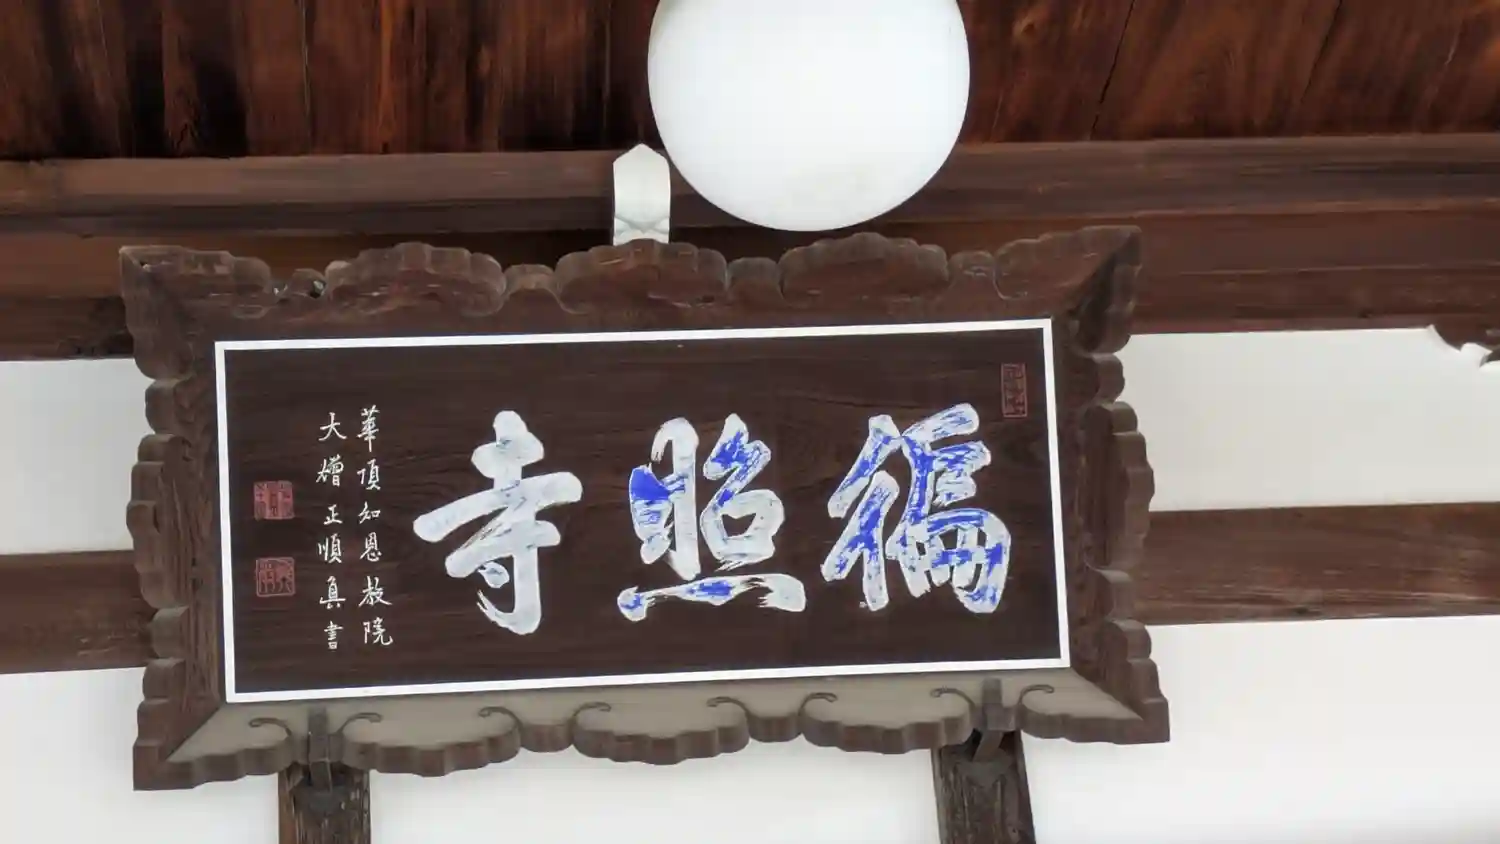 徧照寺
華頂知恩教院
大僧正順眞書